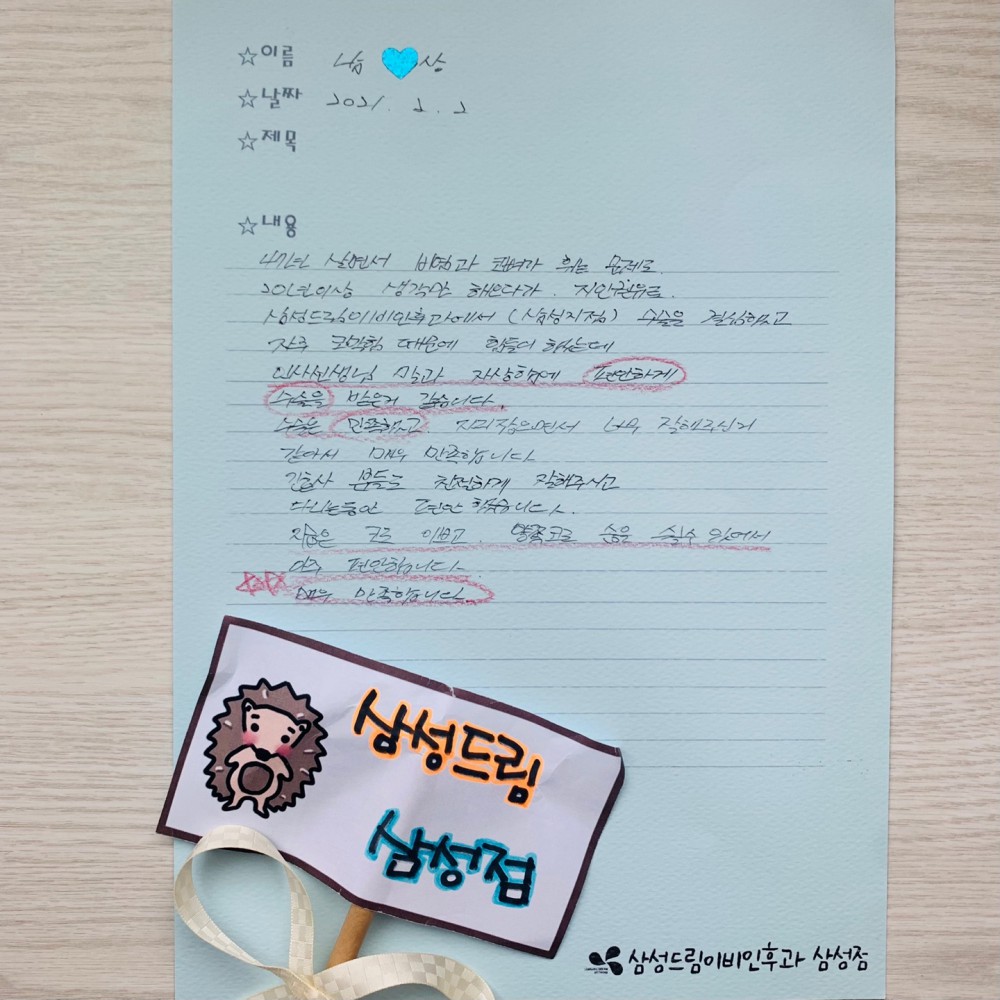 ☆이름 남 상
☆날짜 2021. 2. 2
☆제목
☆내용
47년 살면서 비염과 코뼈가 휘는 문제로
20년이상 생각만 해오다가. 지인권유로.
삼성드림이비인후과에서 (삼성지점) 수술을 결심하고
자주 코막힘 때문에 힘들어 하는데
의사선생님 말과 자상함에 편안하게
수술을 받은거 같습니다.
수술은 만족하고 지켜작으면서 너무 잘해주신거
같아서 매우 만족합니다
간호사 분들도 친절하게 잘해주시고
다니는동안 편안 했습니다.
지금은 코도 이쁘고. 양쪽코로 숨을 쉴수 있어서
아주 편안합니다.
매우 만족합니다.
삼성드림
삼성점
삼성드림이비인후과 삼성점